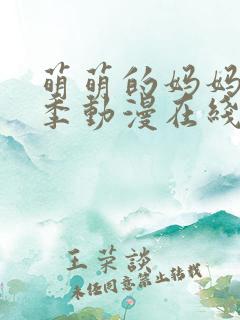 萌萌的妈妈
季動漫在綫
王荣談
未经同意禁止转载